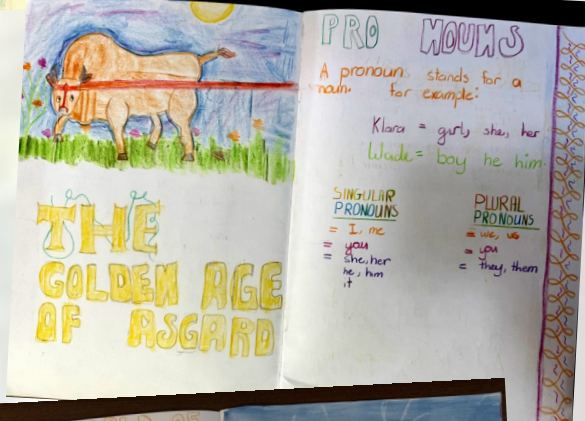 THE
GOLDEN AGE
OF ASGARD
PRO NOUNS
A pronoun stands for a
noun. for example:
Klara = girl, she, her
Wade = boy he him
SINGULAR
PRONOUNS
= I, me
= you
= she, her
he, him
it
PLURAL
PRONOUNS
= we, us
= you
= they, them